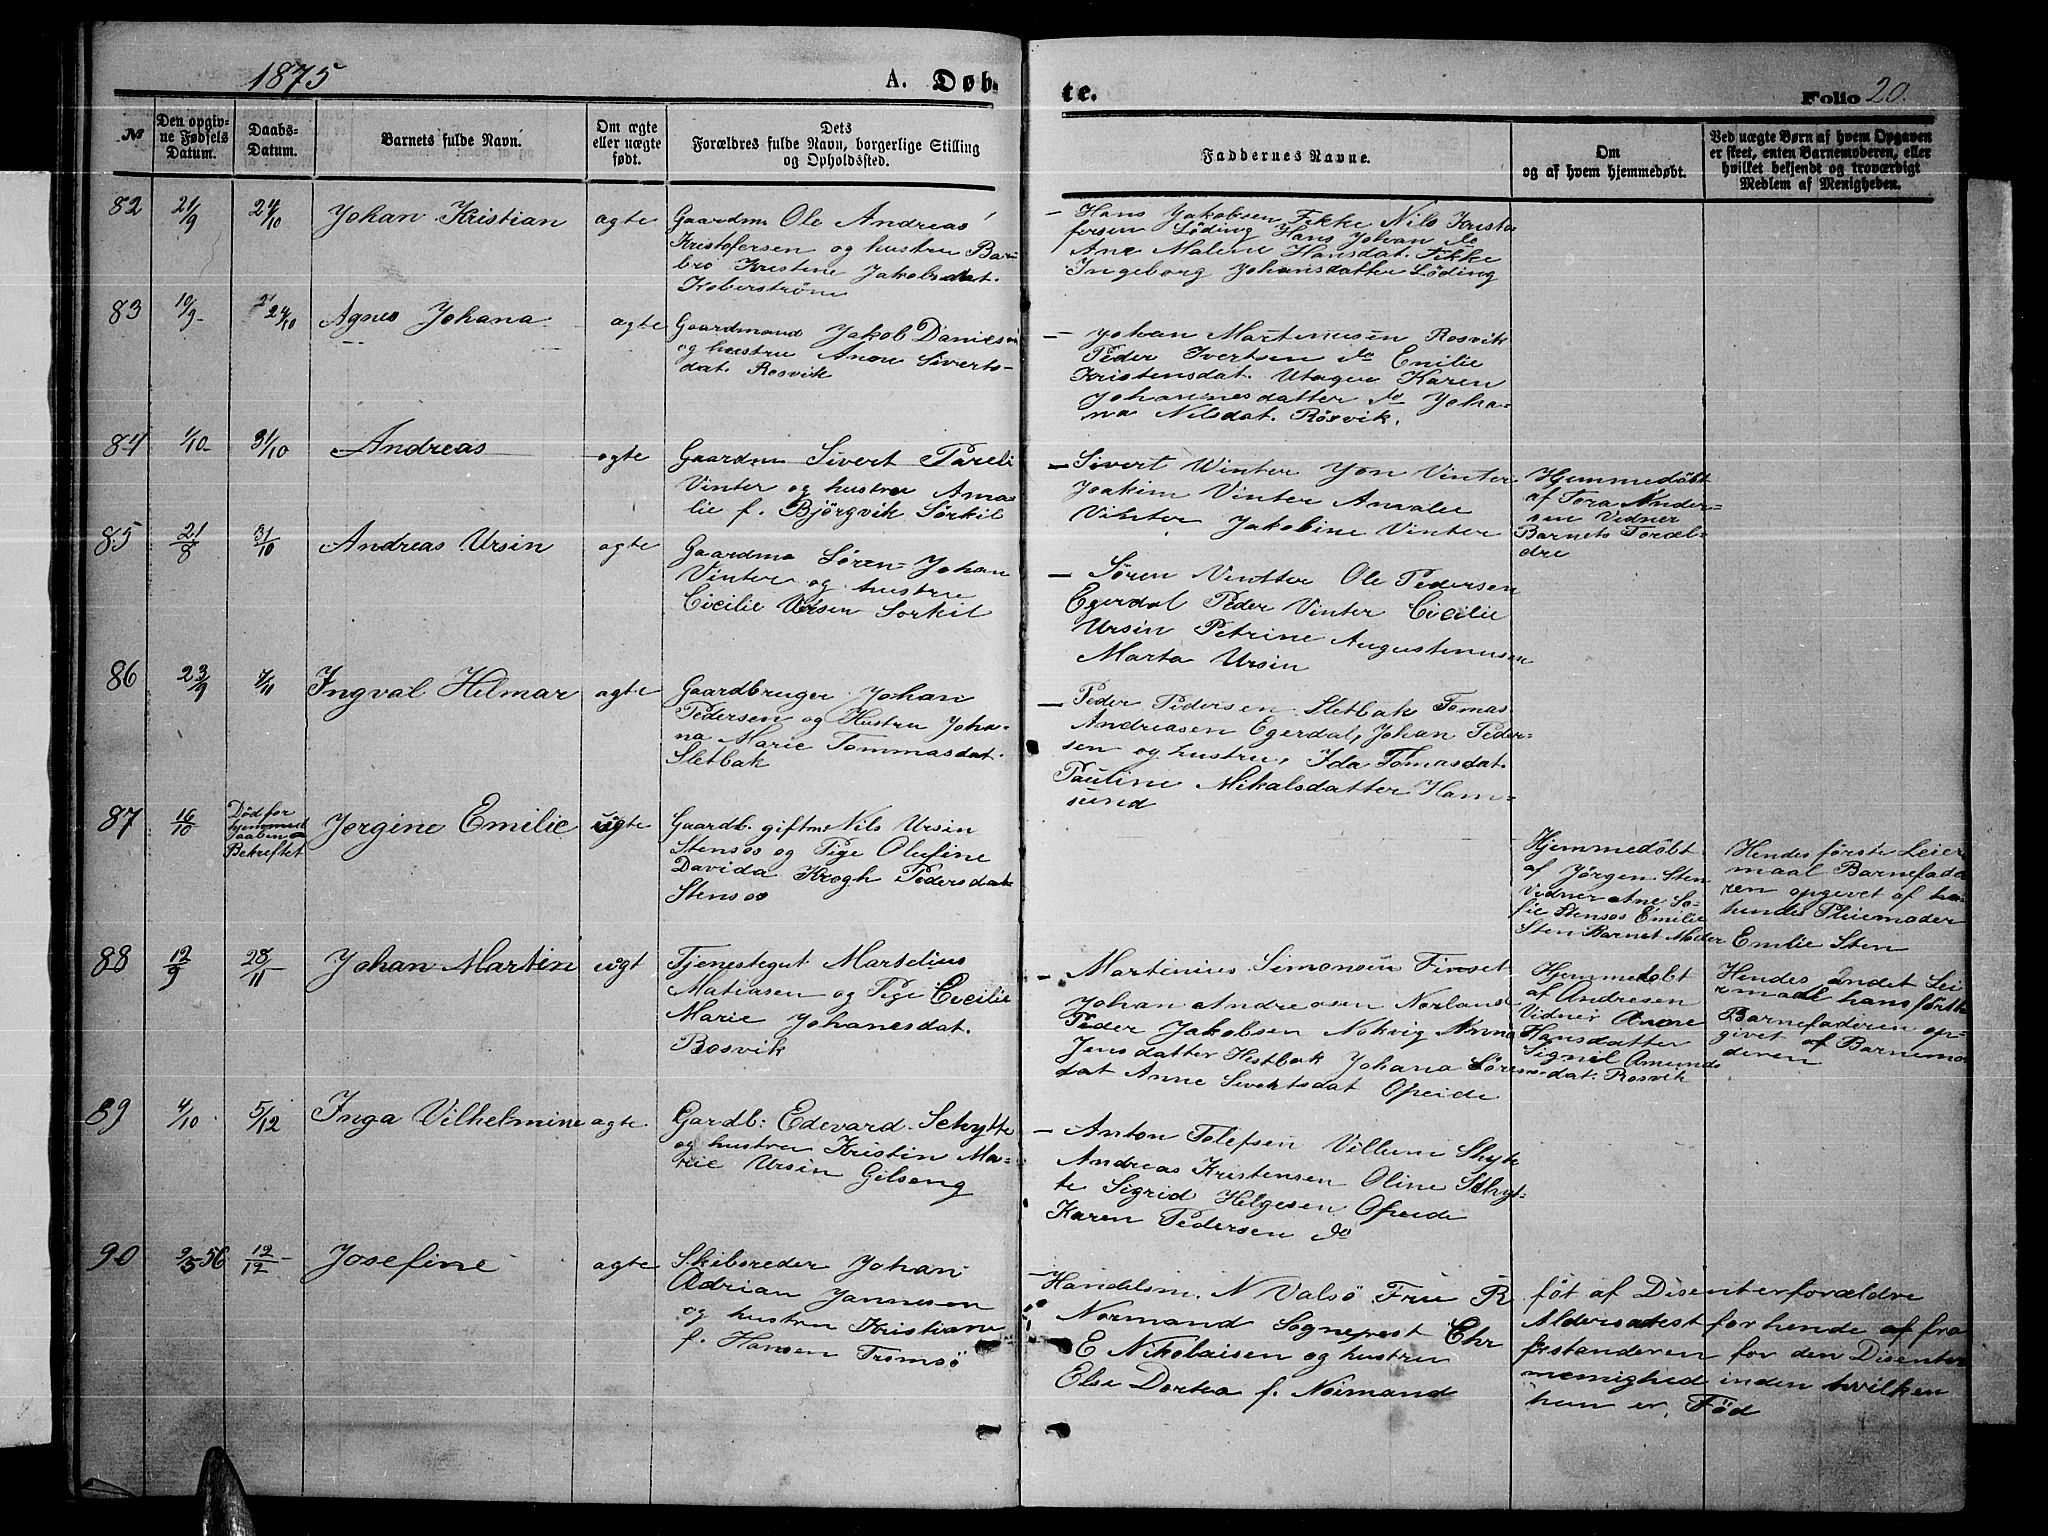 1875
A. Døb-
te.
Folio 20.
№
Den opgiv-
ne Fødsels
Datum.
Daabs-
Datum.
Barnets fulde Navn.
Om ægte
eller uægte
født.
Dets
Forældres fulde Navn, borgerlige Stilling
og Opholdssted.
Faddernes Navne.
Om
og af hvem hjemmedøbt.
Ved uægte Børn af hvem Opgaven
er skeet, enten Barnemoderen, eller
hvilket bekjendt og troværdigt
Medlem af Menigheden.
82
21/9
24/10
Johan Kristian
ægte
Gaardm Ole Andreas
Kristofersen og hustru Bar
bro Kristine Jakobsdat.
Koberstrøm
Hans Jakobsen Fikke Nils Kristo
fersen Löding Hans Johan do
Ane Malene Hansdat. Fikke
Ingeborg Johansdatter Löding
83
10/9
24/10
Agnes Johana
ægte
Gaardmand Jakob Daniesen
og hustru Anne Siverts-
dat. Rosvik
Johan Martinusen Rosvik
Peder Ivertsen do Emilie
Kristensdat. Utager Karen
Johannesdatter do Joha-
na Nilsdat. Rösvik.
84
1/10
31/10
Andreas
ægte
Gaardm Sivert Pareli
Vinter og hustru Ama
lie f. Björgvik Sörkil
Sivert Winter Jon Vinter
Joakim Vinter Amalie
Vinter Jakobine Vinter
Hjemmedöbt
af Tora Ander-
sen Vidner
Barnets Foræl-
dre
85
21/8
31/10
Andreas Ursin
ægte
Gaardm Sören Johan
Vinter og hustru
Cicilie Ursen Sorkil
Sören Vintter Ole Pedersen
Egerdal Peder Vinter Cicilie
Ursin Petrine Augustinusen
Marta Ursin
86
23/9
7/11
Ingval Hilmar
ægte
Gaardbruger Johan
Pedersen og Hustru Joha-
na Marie Tommasdat.
Sletbak
Peder Pedersen Sletbak Tomas
Andreasen Egerdal, Johan Peder-
sen og hustru, Ida Tomasdat.
Pauline Mikalsdatter Ham-
sund
87
16/10
Död for
hjemmed
Daaben
Bekreftet
Jørgine Emilie
uægte
Gaardb. giftm Nils Ursin
Stensos og Pige Olufine
Davida Krogh Pedersdat
Stensos
Hjemmedöbt
af Jörgen Sten
Vidner Ane So-
fie Stensos Emilie
Sten Barnet Moder
Hendes förste Leier
maal Barnefade
ren opgivet af
hendes Pleiemoder
Emilie Sten
88
12/9
28/11
Johan Martin
uægt
Tjenestegut Martelius
Matiasen og Pige Cecilie
Marie Johanesdat.
Rosvik
Martinius Simonsen Finset
Johan Andreasen Norland
Peder Jakobsen Nokvig Anna
Jensdatter Hestbak Johana Sören
dat Anne Sivertsdat Opeide
Hjemmedöbt
af Andresen
Vidner Anne
Hansdatter
Signil Amunds
dat. Rosvik
Hendes 2ndet Lei
ermaal hans förste
Barnefaderen op-
givet af Barnemo-
deren
89
4/10
5/12
Inga Vilhelmine
ægte
Gardb: Edevard Schytte
og hustru Kristin Ma-
rie Ursin Gilseng
Anton Tolefsen Villum Skyte
Andreas Kristensen Oline Schyt-
te Sigrid Helgesen Opeide
Karen Pedersen do
90
2/5 56
12/12
Josefine
ægte
Skibsreder Johan
Adrian Jannesen
og hustru Kristiane
f. Hansen Tromsö
Handelsm. N Valsö Fru R
Normand Sognepest Chr
E Nikolaisen og hustru
Else Dortea f. Normand
föt af Disenterforældre
Aldersatest for hende af fra
frestanderen for den Disenter
menighed inden hvilken
hun er Föd